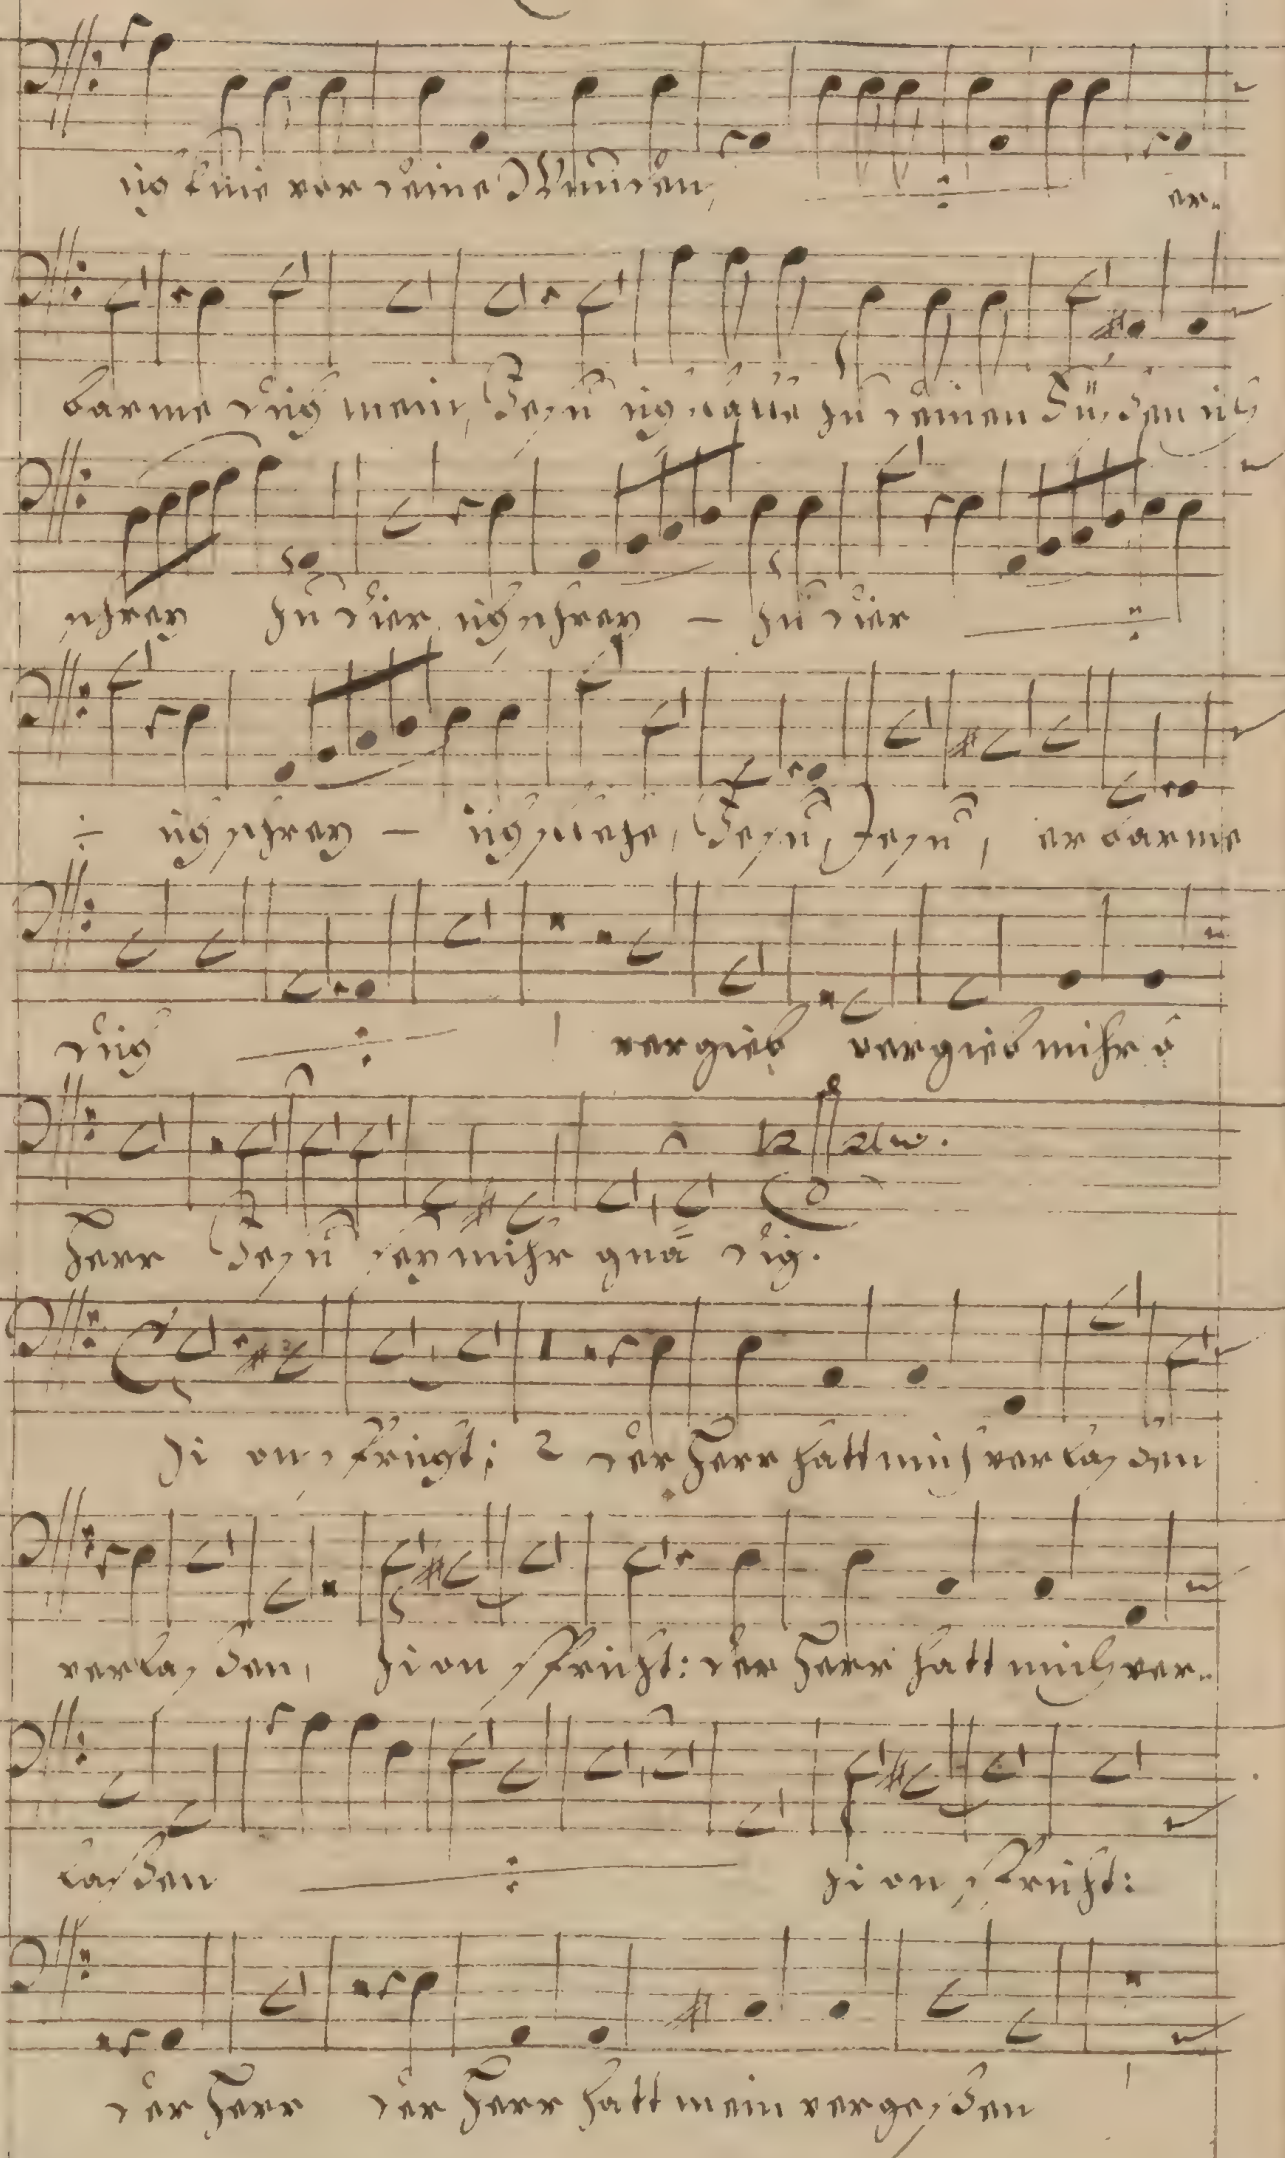 ich knie vor deine Wunden, ÷ er-
barme dich mein, Jesu ich ruffe zu deinen Füssen ich
schrey zu dier ich schrey – zu dier ÷
÷ ich schrey – ich, Jesu, Jesu, erbarme
dich ÷ vergieb vergieb mihr o
Herr Jesu sey mihr gnädig.
Zion spricht: 2 der Herr hatt mich verlassen
verlassen, Zion spricht: der Herr hatt mich ver-
lassen ÷ Zion spricht:
der Herr der Herr hatt mein vergessen